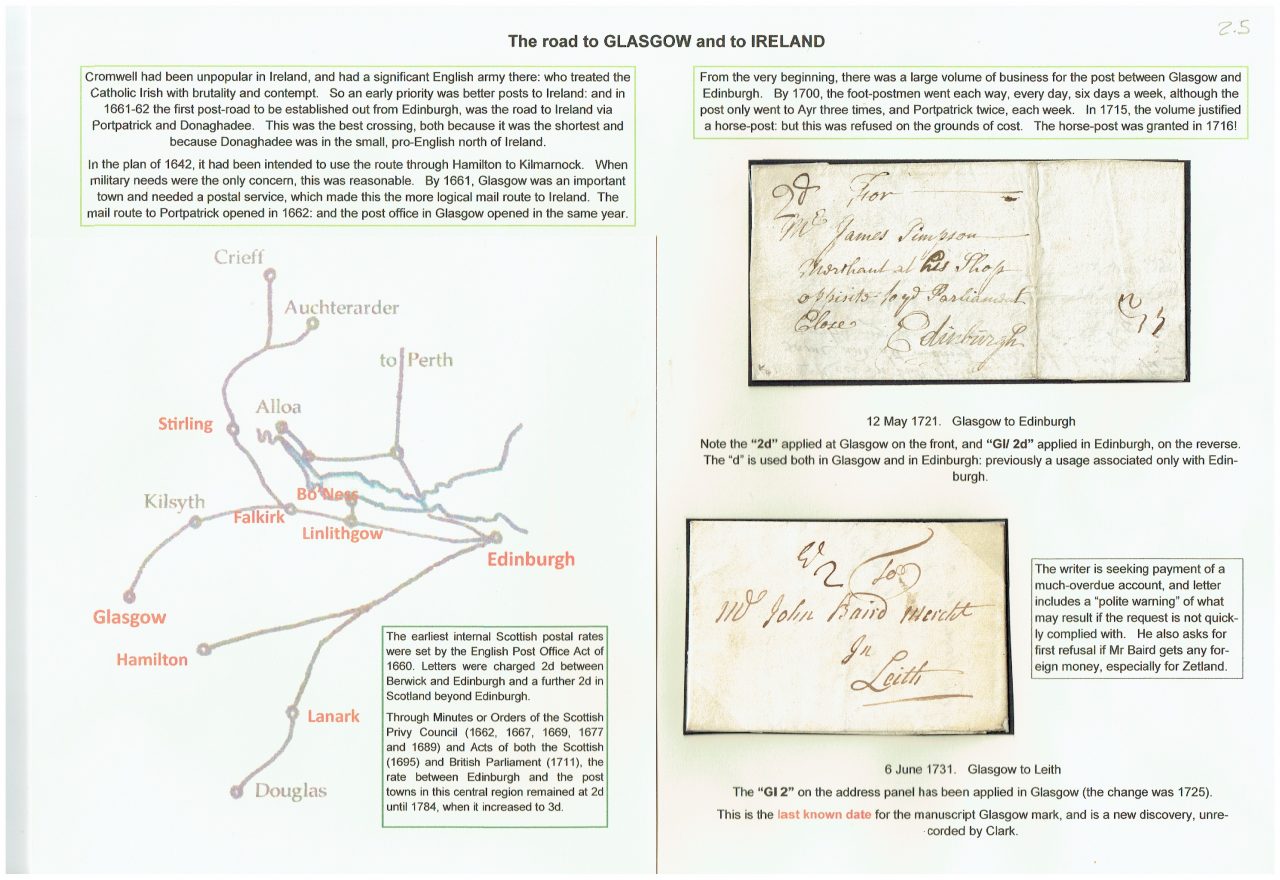 2.5
The road to GLASGOW and to IRELAND
Cromwell had been unpopular in Ireland, and had a significant English army there: who treated the
Catholic Irish with brutality and contempt. So an early priority was better posts to Ireland: and in
1661-62 the first post-road to be established out from Edinburgh, was the road to Ireland via
Portpatrick and Donaghadee. This was the best crossing, both because it was the shortest and
because Donaghadee was in the small, pro-English north of Ireland.
In the plan of 1642, it had been intended to use the route through Hamilton to Kilmarnock. When
military needs were the only concern, this was reasonable. By 1661, Glasgow was an important
town and needed a postal service, which made this the more logical mail route to Ireland. The
mail route to Portpatrick opened in 1662: and the post office in Glasgow opened in the same year.
Crieff
Auchterarder
to Perth
Alloa
Stirling
Bo'Ness
Kilsyth
Falkirk
Linlithgow
Edinburgh
Glasgow
Hamilton
Lanark
Douglas
The earliest internal Scottish postal rates
were set by the English Post Office Act of
1660. Letters were charged 2d between
Berwick and Edinburgh and a further 2d in
Scotland beyond Edinburgh.
Through Minutes or Orders of the Scottish
Privy Council (1662, 1667, 1669, 1677
and 1689) and Acts of both the Scottish
(1695) and British Parliament (1711), the
rate between Edinburgh and the post
towns in this central region remained at 2d
until 1784, when it increased to 3d.
From the very beginning, there was a large volume of business for the post between Glasgow and
Edinburgh. By 1700, the foot-postmen went each way, every day, six days a week, although the
post only went to Ayr three times, and Portpatrick twice, each week. In 1715, the volume justified
a horse-post: but this was refused on the grounds of cost. The horse-post was granted in 1716!
2d For
Mr James Simpson
Merchant at his Shop
opposite to yd Parliament
Close Edinburgh
12 May 1721. Glasgow to Edinburgh
Note the "2d" applied at Glasgow on the front, and "Gl/ 2d" applied in Edinburgh, on the reverse.
The "d" is used both in Glasgow and in Edinburgh: previously a usage associated only with Edin-
burgh.
Gl 2 To
Mr John Baird Mercht
In
Leith
The writer is seeking payment of a
much-overdue account, and letter
includes a "polite warning" of what
may result if the request is not quick-
ly complied with. He also asks for
first refusal if Mr Baird gets any for-
eign money, especially for Zetland.
6 June 1731. Glasgow to Leith
The "Gl 2" on the address panel has been applied in Glasgow (the change was 1725).
This is the last known date for the manuscript Glasgow mark, and is a new discovery, unre-
corded by Clark.